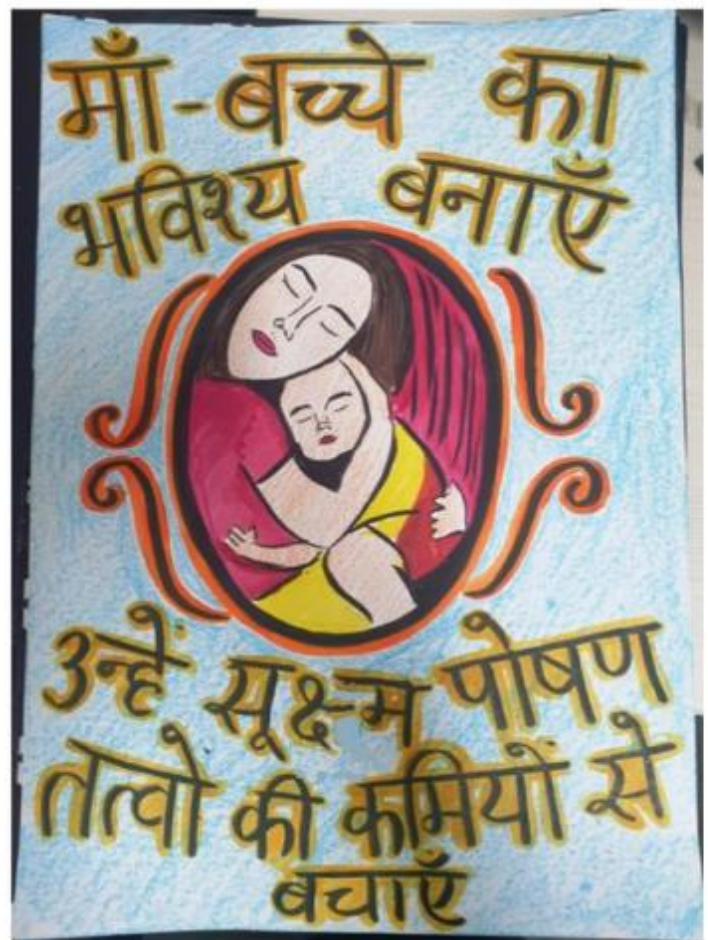 माँ-बच्चे का
भविश्य बनाएँ
उन्हें सूक्ष्म पोषण
तत्वो की कमियों से
बचाएँ